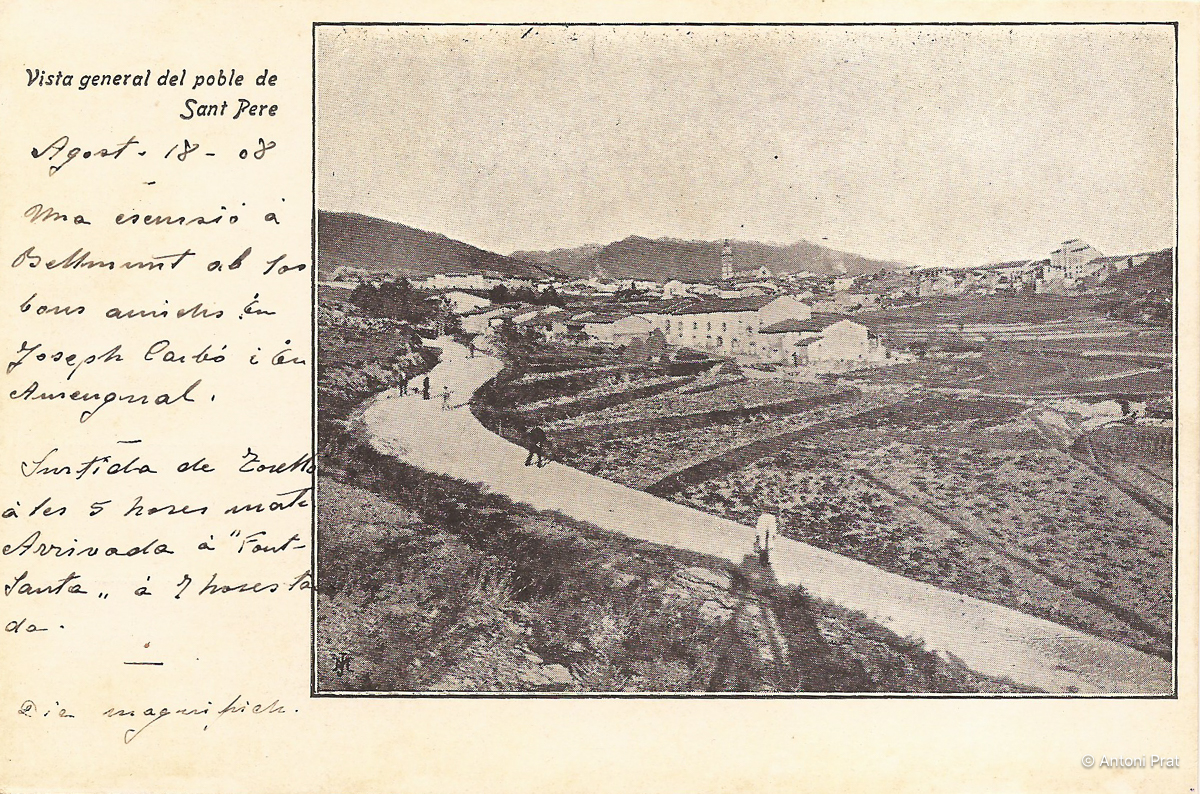 Vista general del poble de
Sant Pere
Agost. 18 - 08
Una escursió á
Bellmunt ab los
bons amichs En
Joseph Carbó i En
Amengual.
Surtida de Torelló
á les 5 hores mati
Arrivada á "Font-
Santa„ á 7 hores ta
da.
Dia magnifich.
© Antoni Prat